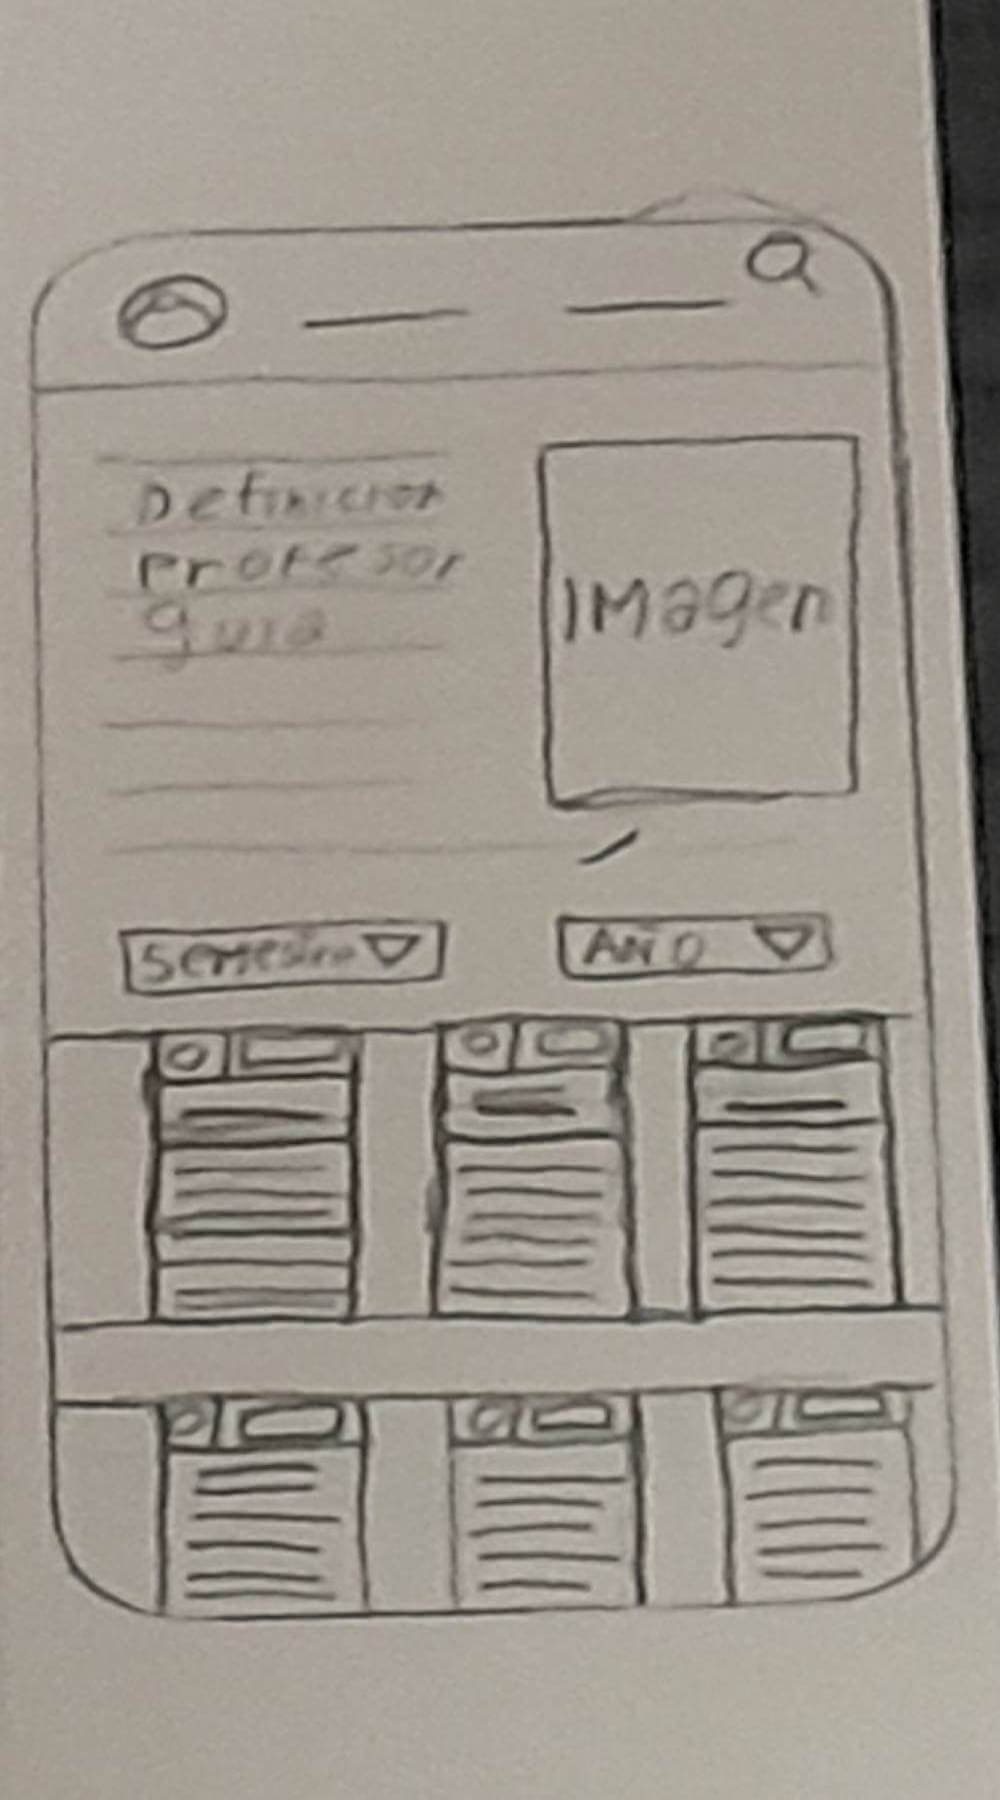 Definicion
Profesor
guia
Imagen
Semestre
Año